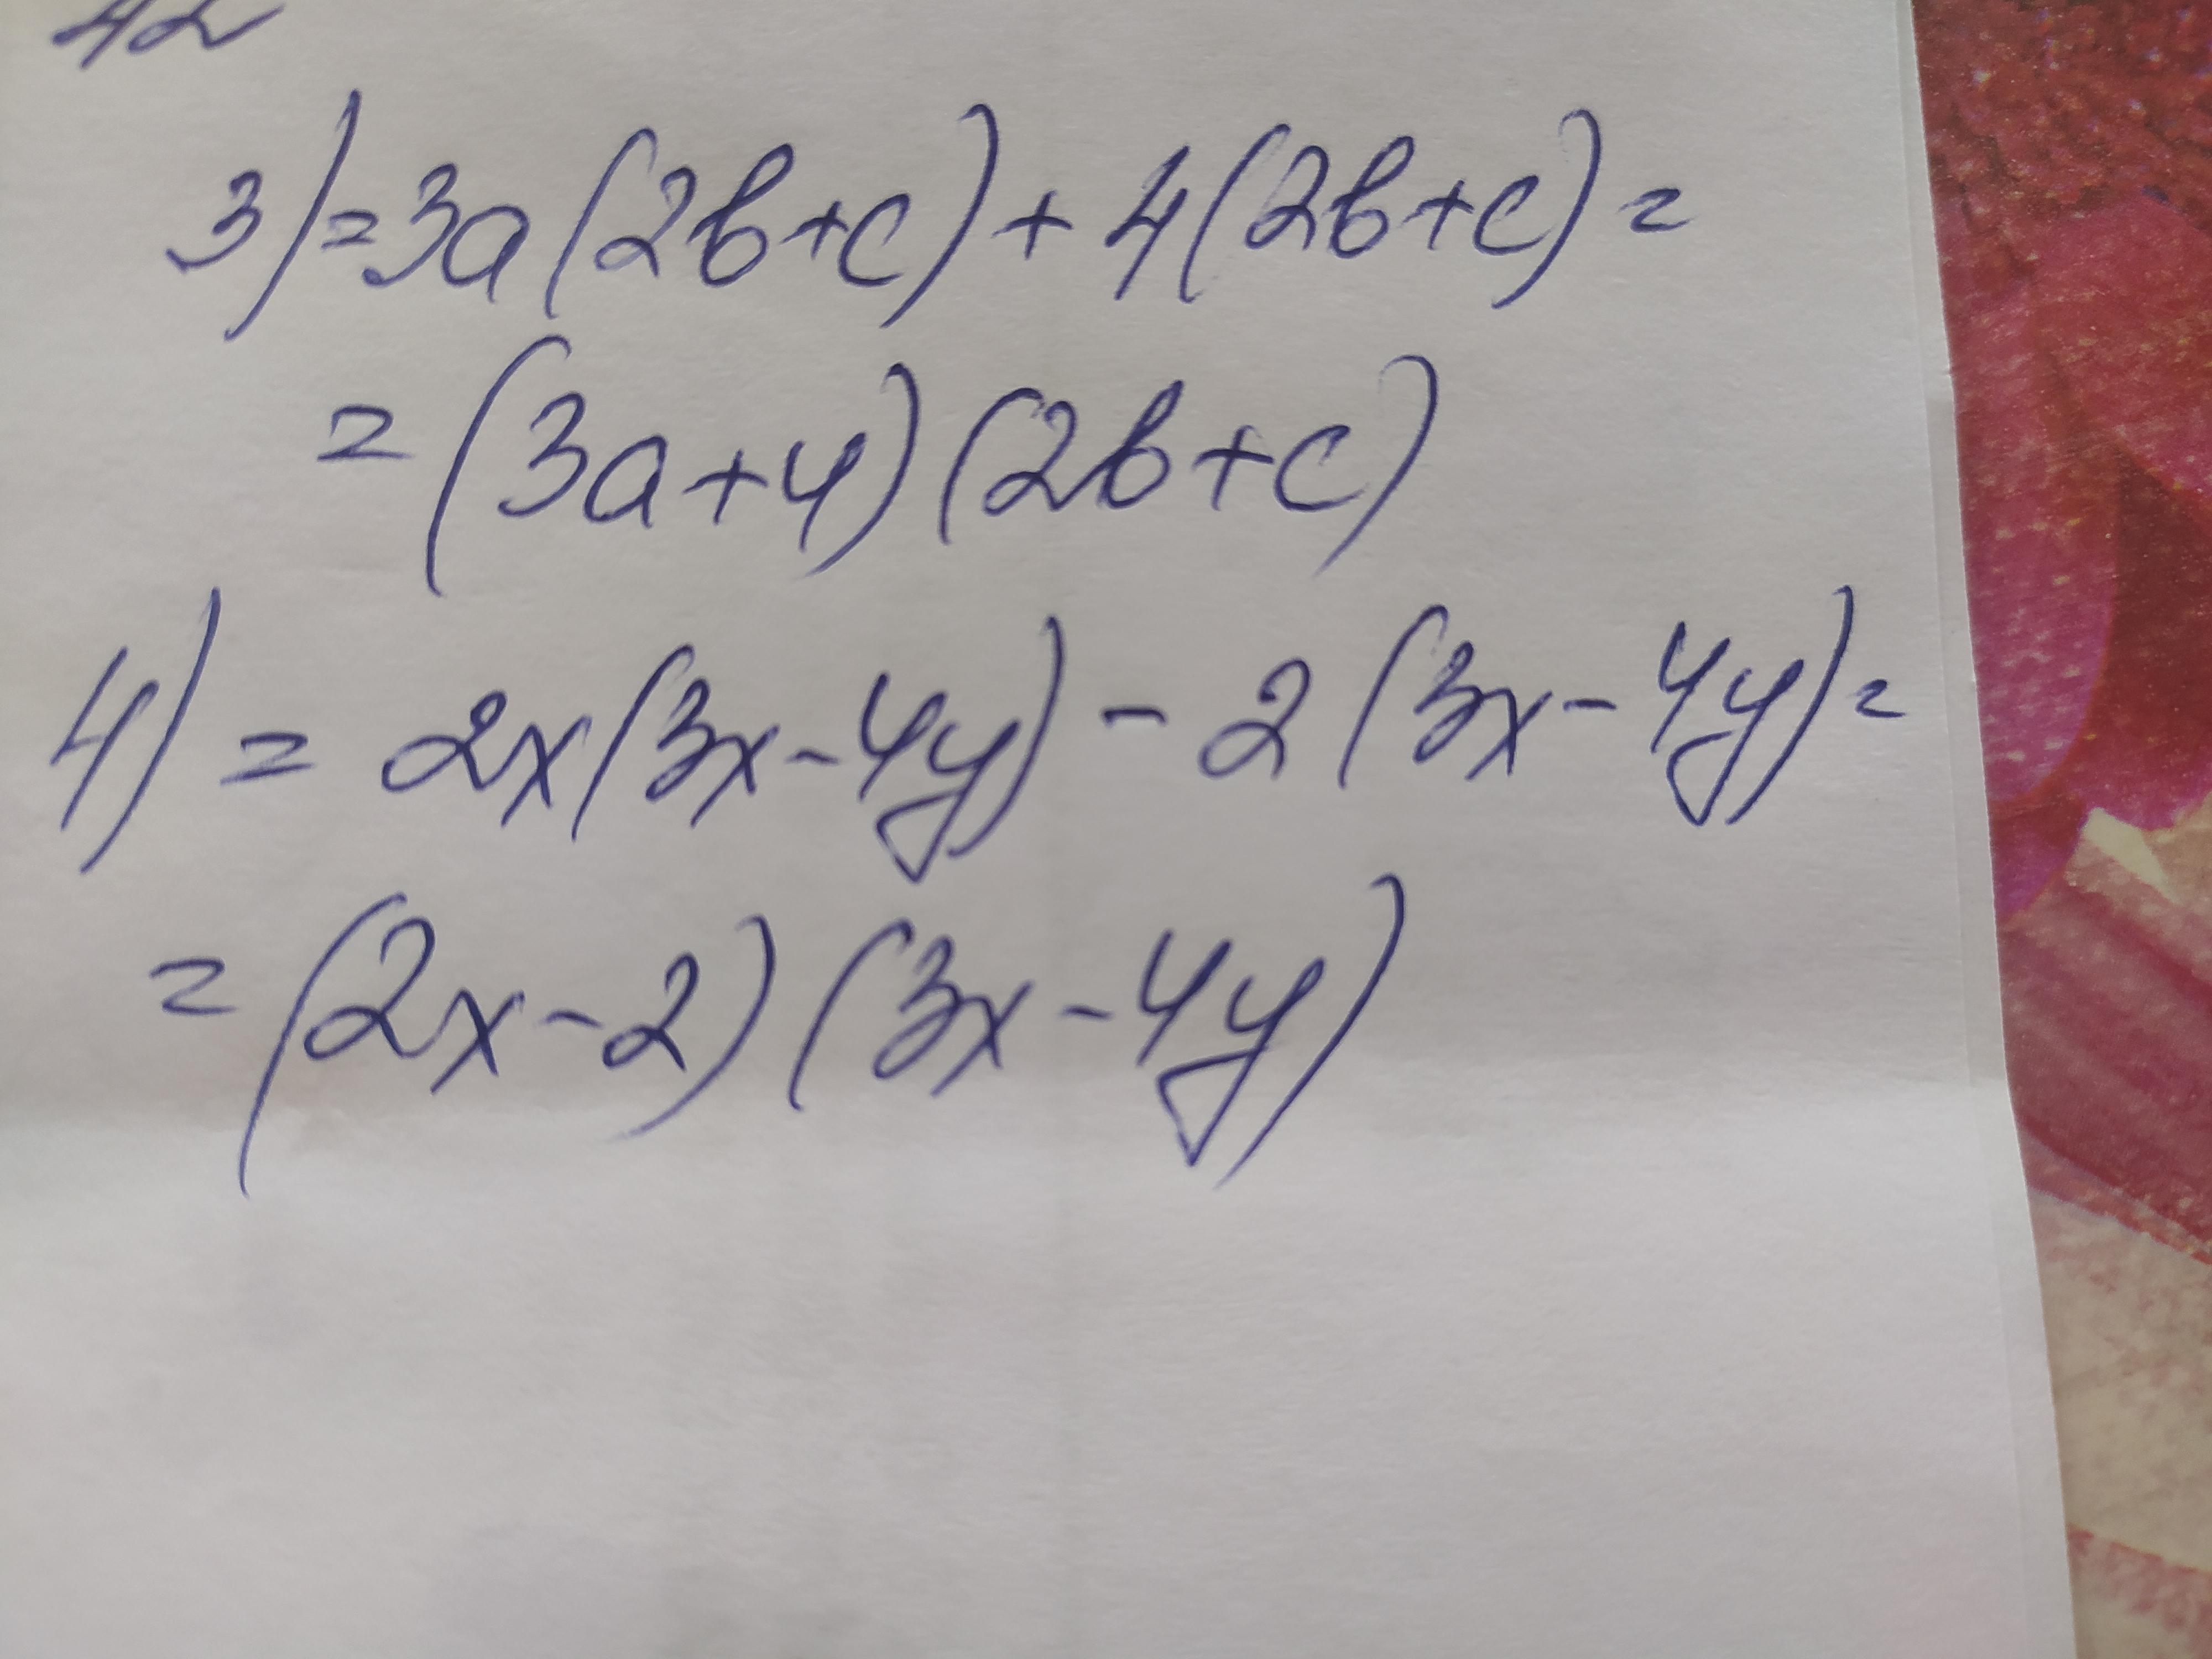 42
3) = 3a(2b+c) + 4(2b+c) =
= (3a+4)(2b+c)
4) = 2x(3x-4y) - 2(3x-4y) =
= (2x-2)(3x-4y)